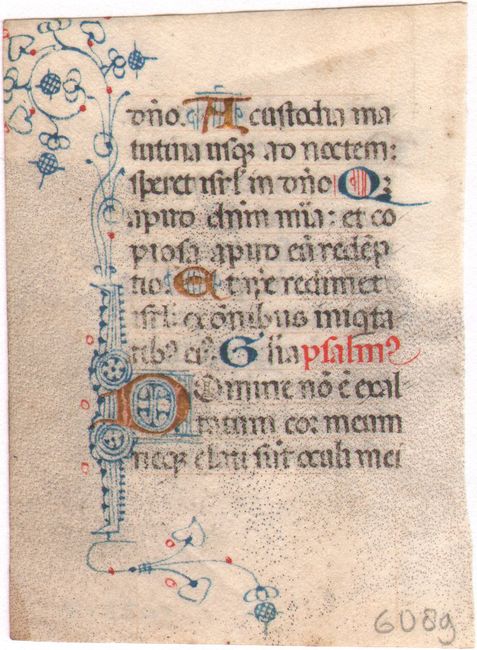 dño. A custodia ma
tutina usq; ad noctem:
speret isrl in dño Q;
apud dñm mia: et co
piosa apud eū redēp
tio Et ipse redimet
isrl: ex oñibus iniqta
tib9 ei9 Glia psalm9
Domine nō ē exal
tatum cor meum
neq; elati sūt oculi mei
6089